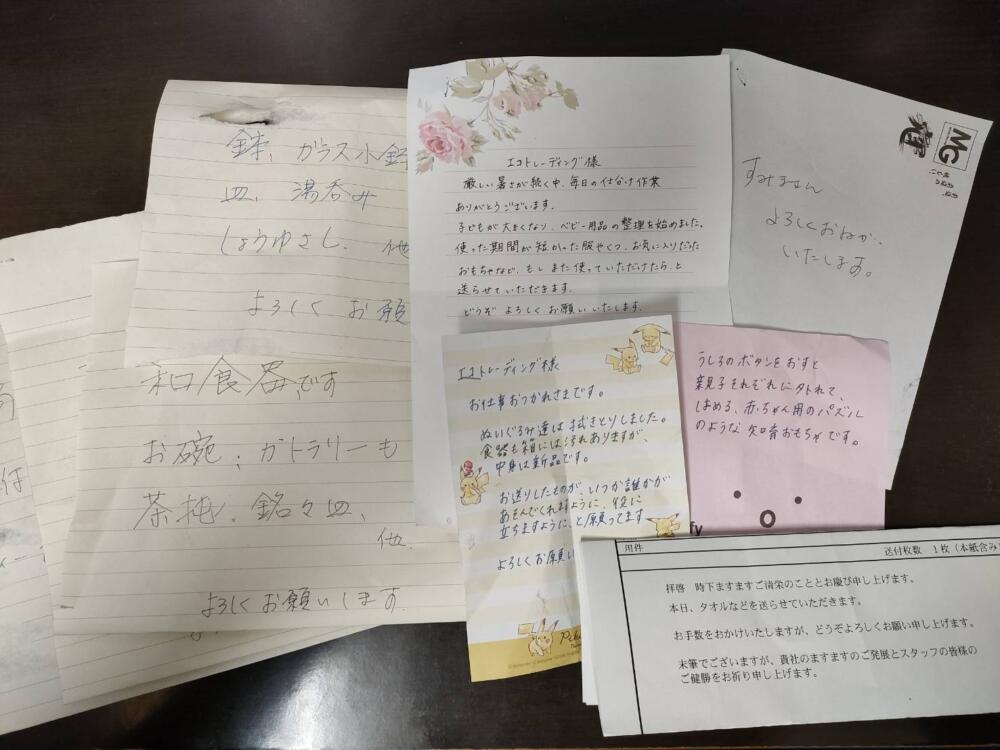 鉢、ガラス小鉢
皿、湯呑み
しょうゆさし、他
よろしくお願
和食器です
お碗、カトラリーも
茶托、銘々皿、
他
よろしくお願いします
エコトレーディング様
厳しい暑さが続く中、毎日の仕分け作業
ありがとうございます。
子どもが大きくなり、ベビー用品の整理を始めました。
使った期間が短かった服やくつ、お気に入りだった
おもちゃなど、もしまた使っていただけたら、と
送らせていただきます。
どうぞ よろしく お願いいたします。
MG
すみません
よろしくおねがい
いたします。
エコトレーディング様
お仕事おつかれさまです。
ぬいぐるみ達は拭きとりしました。
食器も箱には汚れありますが、
中身は新品です。
お送りしたものが、いつか誰かが
あそんでくれますように、役に
立ちますように、と願ってます
よろしくお願い
うしろのボタンをおすと
親子それぞれにハズれて、
はめる、赤ちゃん用のパズル
のような知育おもちゃです。
用件
送付枚数 1枚(本紙含み
拝啓 時下ますますご清栄のこととお慶び申し上げます。
本日、タオルなどを送らせていただきます。
お手数をおかけいたしますが、どうぞよろしくお願い申し上げます。
末筆でございますが、貴社のますますのご発展とスタッフの皆様の
ご健勝をお祈り申し上げます。